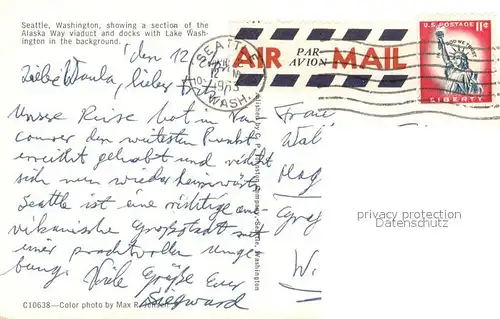 Seattle, Washington, showing a section of the
Alaska Way viaduct and docks with Lake Wash-
ington in the background.
den 12
Liebe Wanla, lieber Fritz,
Unsere Reise hat in Van
couver den weitesten Punkt
erreicht gehabt und richtet
sich nun wieder heimwärts
Seattle ist eine richtige ame-
rikanische Großstadt mit
einer prachtvollen Umge
bung. Viele Grüße Euer
Siegward
C10638—Color photo by Max R.
SEATTLE
WASH.
12
AIR PAR AVION MAIL
U.S. POSTAGE 11¢
IN GOD WE TRUST
LIBERTY
Published by C. P. Company, Seattle, Washington
Frau
Wal
Hag
privacy protection
Datenschutz
W.